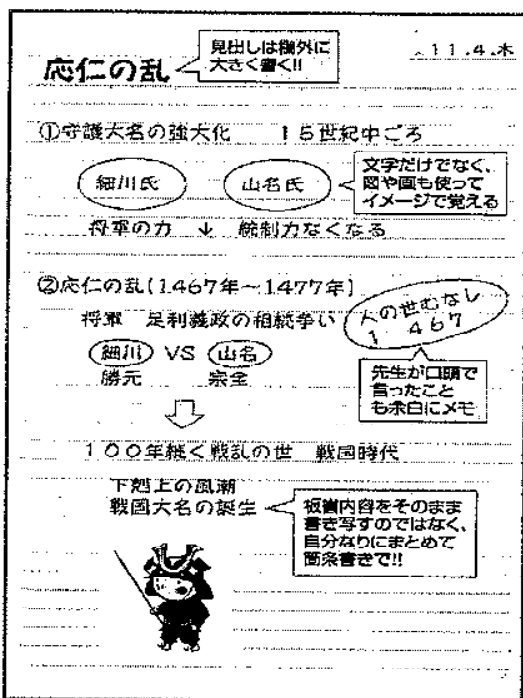 11.4.木
応仁の乱
見出しは欄外に
大きく書く!!
①守護大名の強大化 15世紀中ごろ
細川氏 山名氏
文字だけでなく、
図や画も使って
イメージで覚える
将軍の力 ↓ 統制力なくなる
②応仁の乱(1467年〜1477年)
将軍 足利義政の相続争い
人の世むなし
1 467
細川 VS 山名
勝元 宗全
先生が口頭で
言ったこと
も余白にメモ
100年続く戦乱の世 戦国時代
下剋上の風潮
戦国大名の誕生
板書内容をそのまま
書き写すのではなく、
自分なりにまとめて
箇条書きで!!